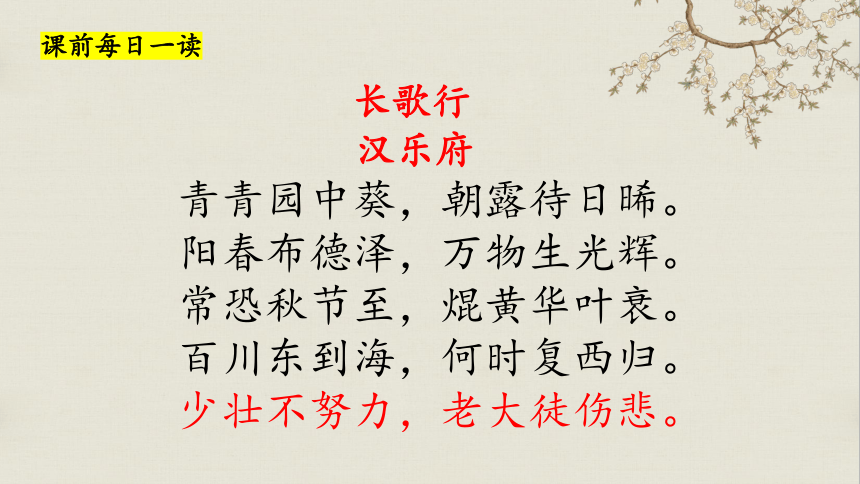 课前每日一读
长歌行
汉乐府
青青园中葵，朝露待日晞。
阳春布德泽，万物生光辉。
常恐秋节至，焜黄华叶衰。
百川东到海，何时复西归。
少壮不努力，老大徒伤悲。